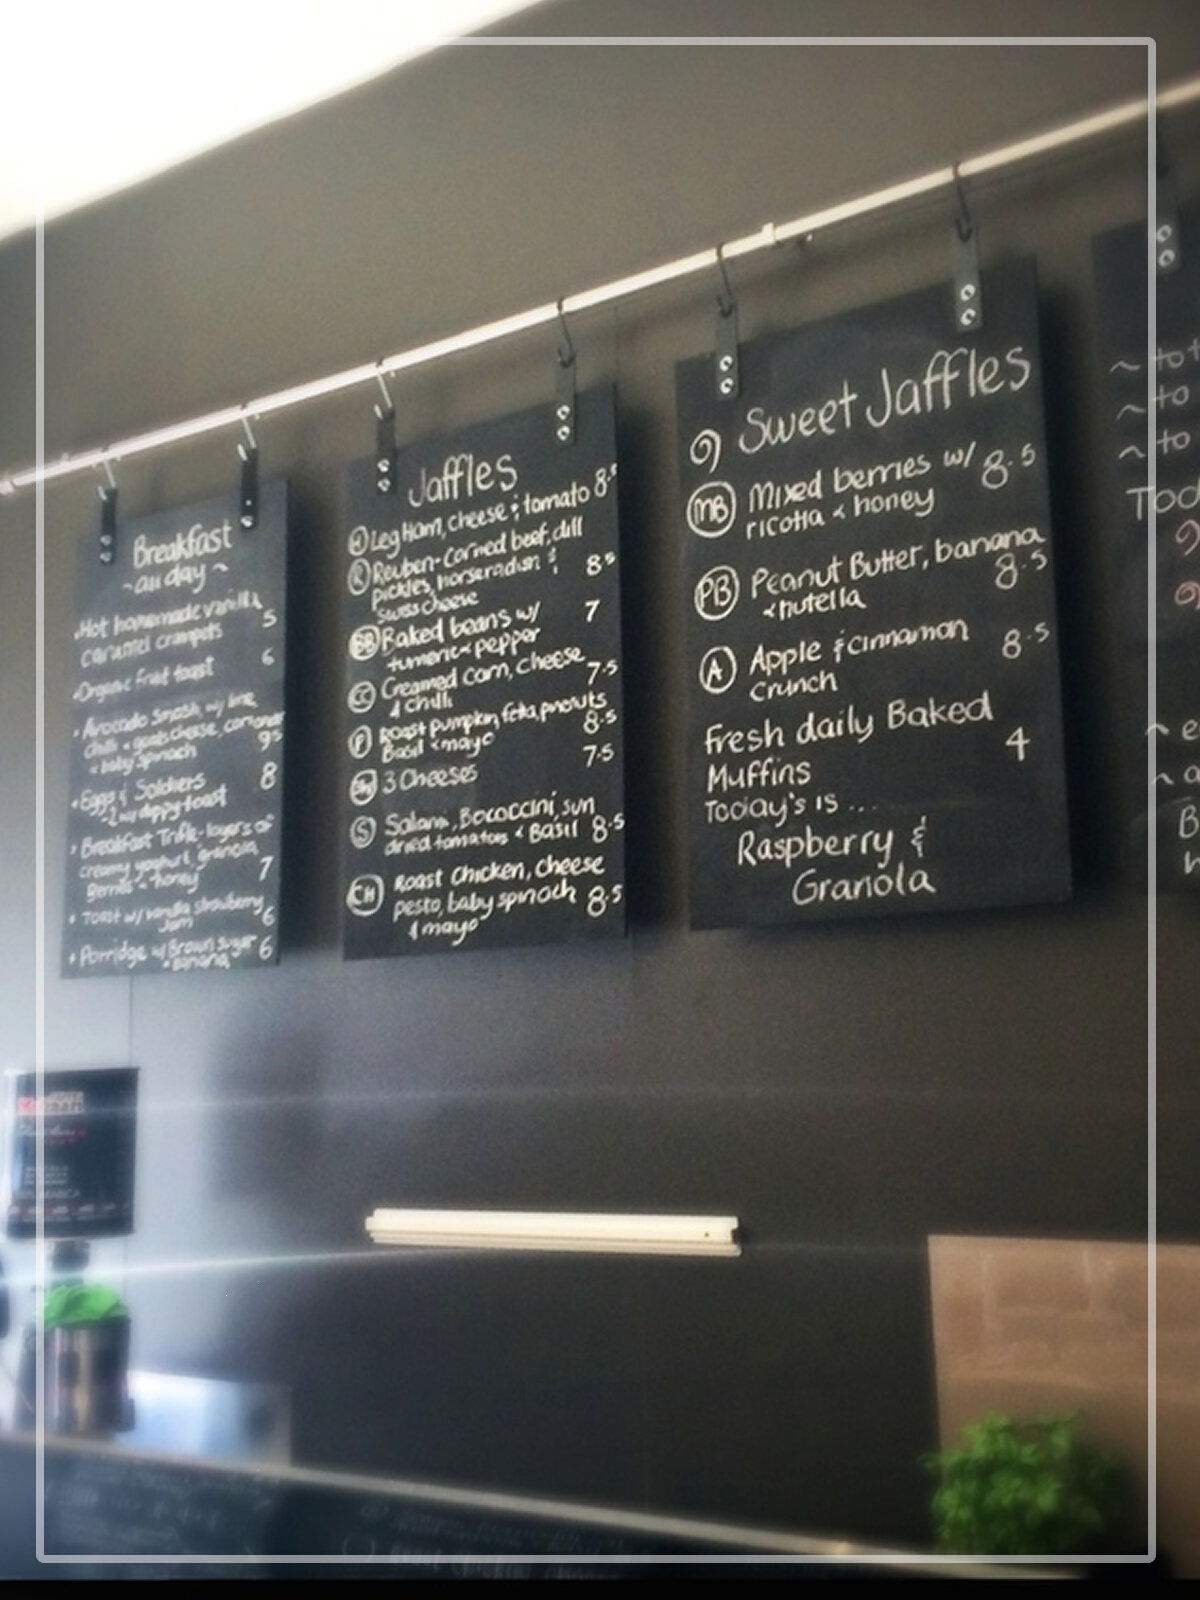 Breakfast
~ all day ~
• Hot homemade vanilla
caramel crumpets 5
• Organic fruit toast 6
• Avocado smash w/ lime,
chilli + goats cheese, coriander
+ baby spinach 9.5
• Eggs & Soldiers 8
- 2 w/ dippy toast
• Breakfast Trifle - layers of
creamy yoghurt, granola,
Berries + honey 7
• Toast w/ vanilla strawberry
Jam 6
• Porridge w/ Brown sugar
+ Banana 6
Jaffles
H Leg Ham, cheese & tomato 8.5
R Reuben - corned beef, dill
pickles, horseradish &
swiss cheese 8.5
BB Baked beans w/ 7
tumeric + pepper
CC Creamed corn, cheese
& chilli 7.5
P Roast pumpkin, fetta, pinenuts
Basil + mayo 8.5
3 Cheeses 7.5
S Salami, Bococcini, sun
dried tomatoes + Basil 8.5
CH Roast Chicken, cheese
pesto, baby spinach 8.5
& mayo
Sweet Jaffles
MB Mixed berries w/ 8.5
ricotta + honey
PB Peanut Butter, banana
+ nutella 8.5
A Apple & cinnamon 8.5
crunch
Fresh daily Baked
Muffins 4
Today's is ...
Raspberry &
Granola
~ to
~ to